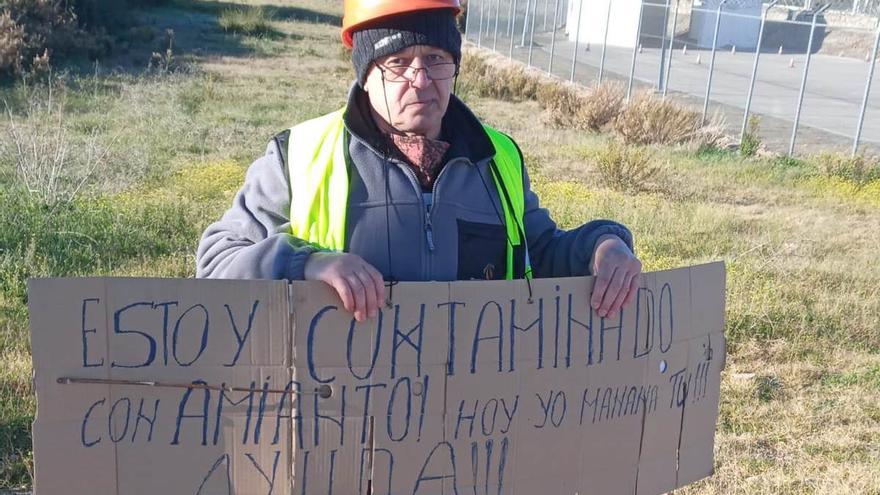 ESTOY CONTAMINADO
CON AMIANTO! HOY YO MAÑANA TU!!!
AYUDA!!!